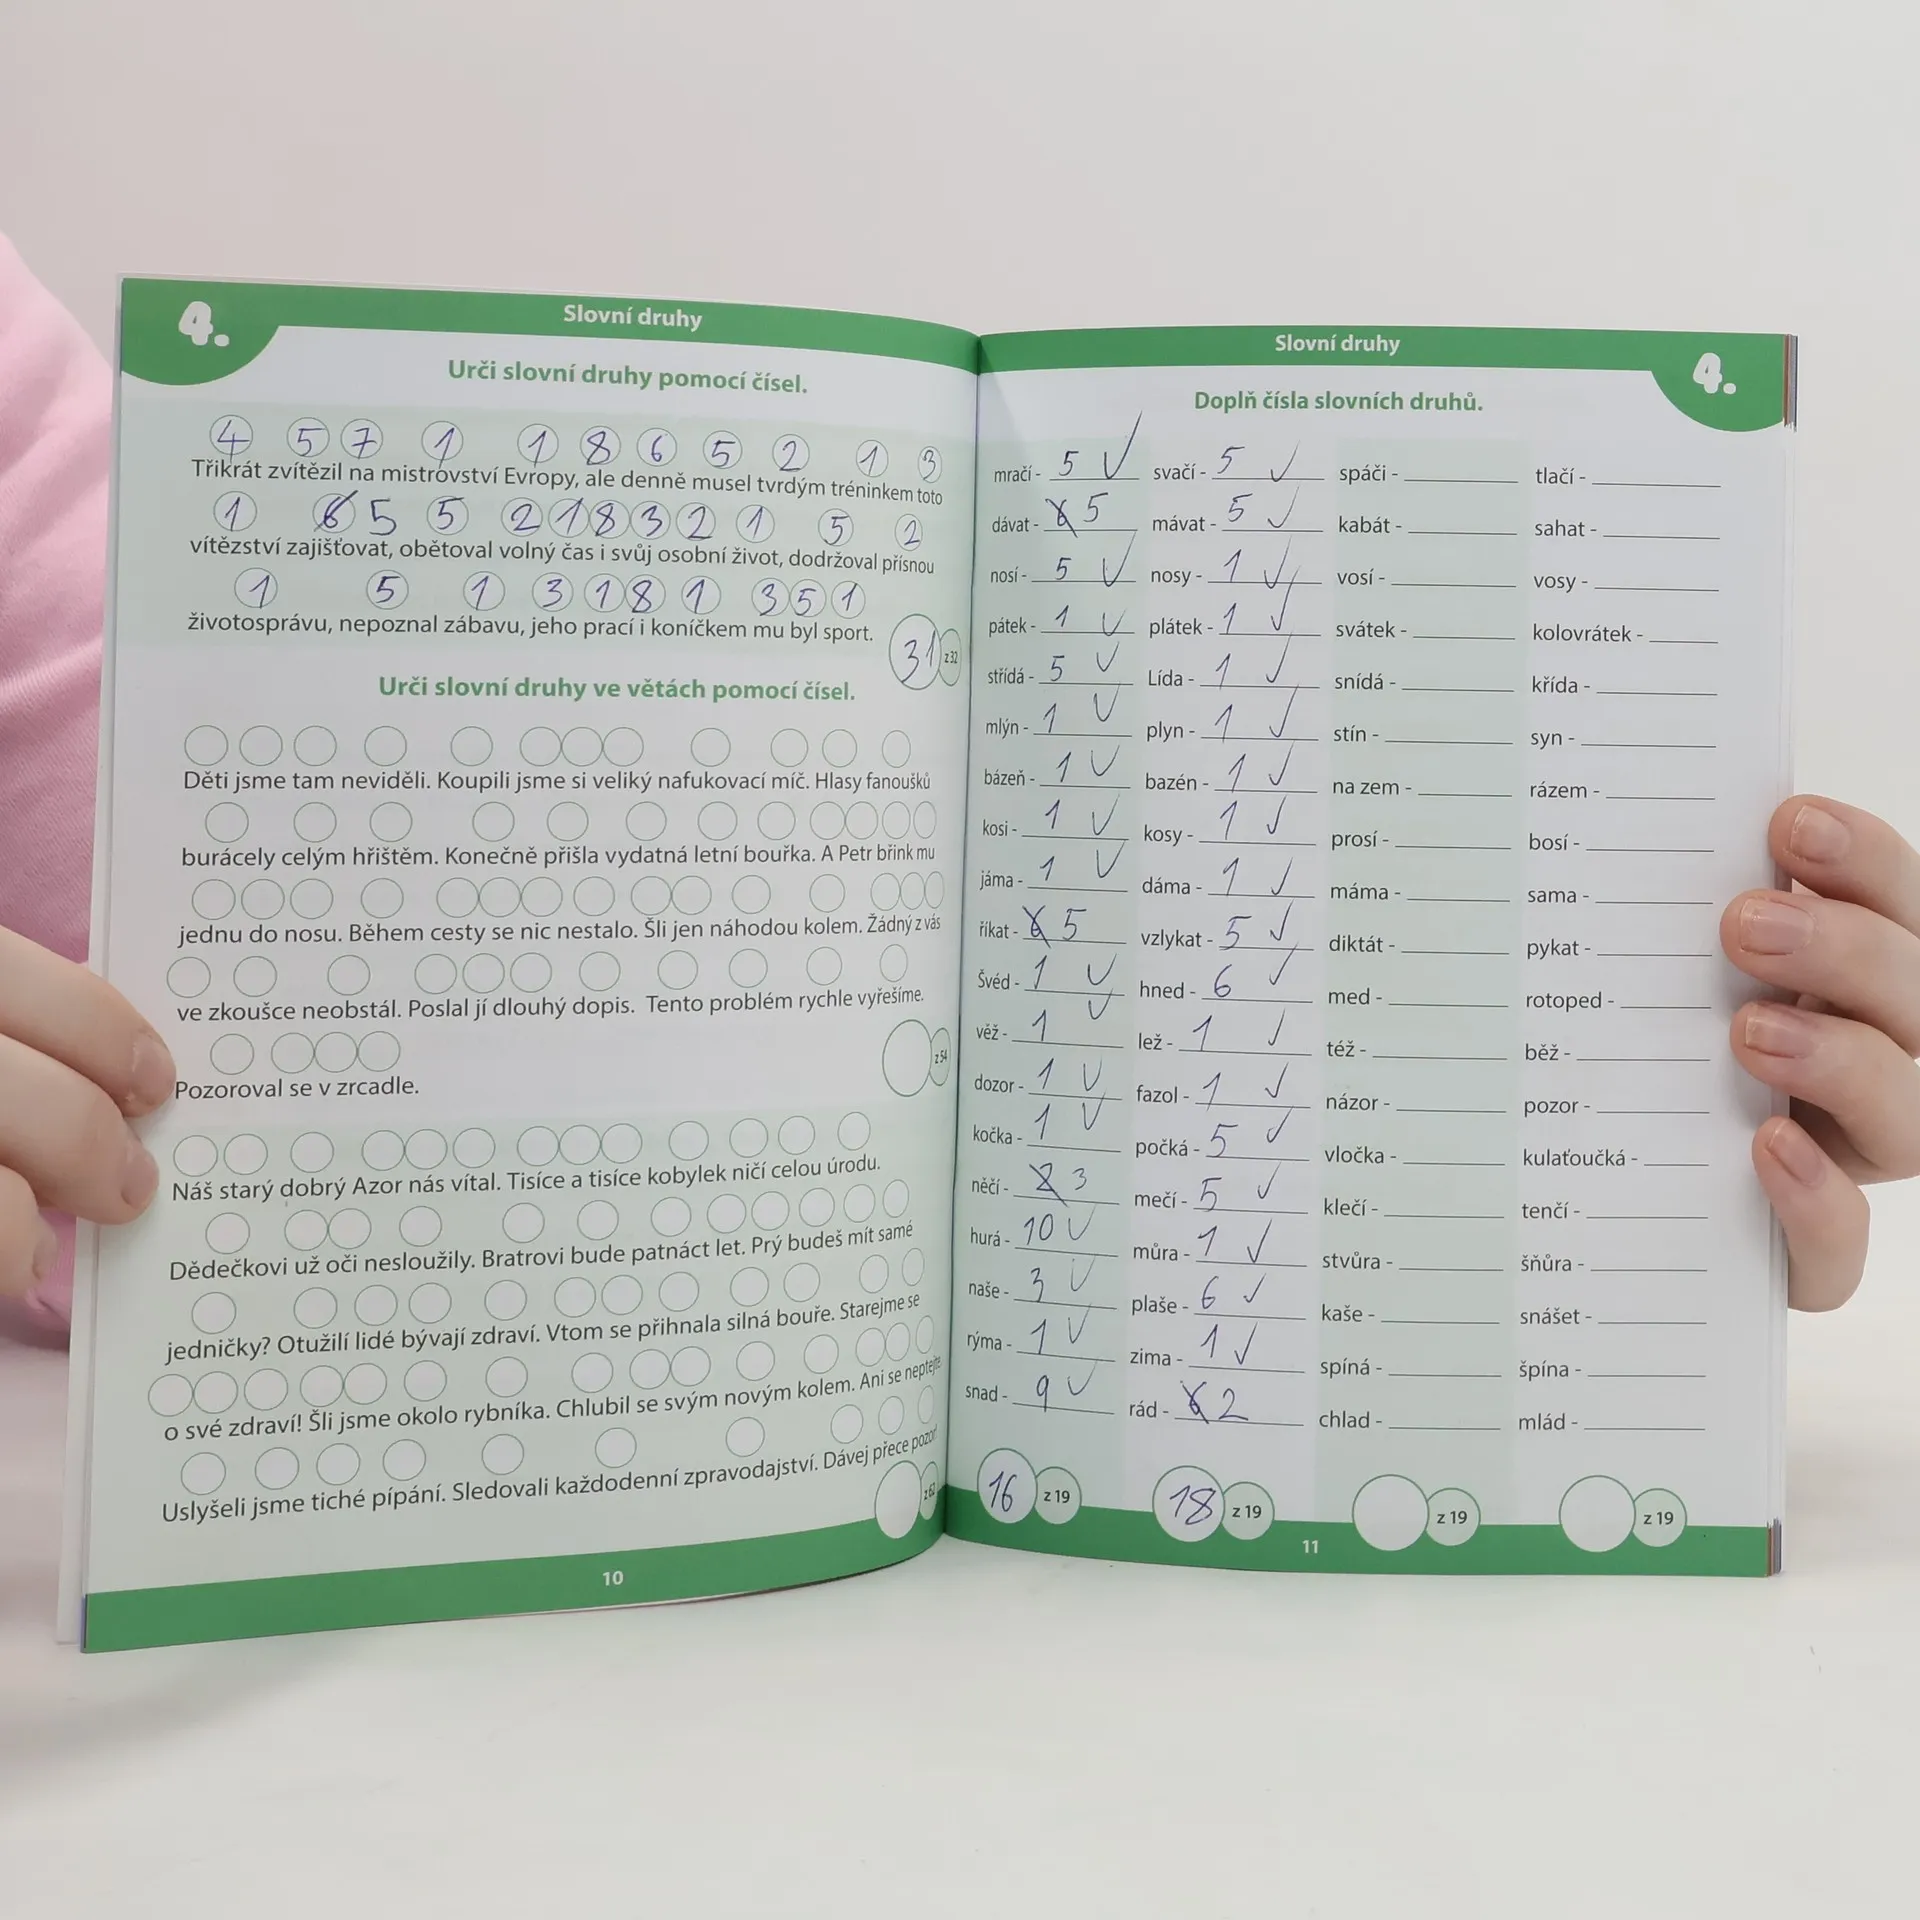 4.
Slovní druhy
Urči slovní druhy pomocí čísel.
4 5 7 1 1 8 6 5 2 1 3
Třikrát zvítězil na mistrovství Evropy, ale denně musel tvrdým tréninkem toto
1 6 5 5 2 1 8 3 2 1 5 2
vítězství zajišťovat, obětoval volný čas i svůj osobní život, dodržoval přísnou
1 5 1 3 1 8 1 3 5 1
životosprávu, nepoznal zábavu, jeho prací i koníčkem mu byl sport.
31 z 32
Urči slovní druhy ve větách pomocí čísel.
Děti jsme tam neviděli. Koupili jsme si veliký nafukovací míč. Hlasy fanoušků
burácely celým hřištěm. Konečně přišla vydatná letní bouřka. A Petr břink mu
jednu do nosu. Během cesty se nic nestalo. Šli jen náhodou kolem. Žádný z vás
ve zkoušce neobstál. Poslal jí dlouhý dopis. Tento problém rychle vyřešíme.
z 54
Pozoroval se v zrcadle.
Náš starý dobrý Azor nás vítal. Tisíce a tisíce kobylek ničí celou úrodu.
Dědečkovi už oči nesloužily. Bratrovi bude patnáct let. Prý budeš mít samé
jedničky? Otužilí lidé bývají zdraví. Vtom se přihnala silná bouře. Starejme se
o své zdraví! Šli jsme okolo rybníka. Chlubil se svým novým kolem. Ani se neptejte
Uslyšeli jsme tiché pípání. Sledovali každodenní zpravodajství. Dávej přece pozor!
z 62
10
Slovní druhy
4.
Doplň čísla slovních druhů.
mračí - 5 svačí - 5 spáči - tlačí -
dávat - 6 5 mávat - 5 kabát - sahat -
nosí - 5 nosy - 1 vosí - vosy -
pátek - 1 plátek - 1 svátek - kolovrátek -
střídá - 5 Lída - 1 snídá - křída -
mlýn - 1 plyn - 1 stín - syn -
bázeň - 1 bazén - 1 na zem - rázem -
kosi - 1 kosy - 1 prosí - bosí -
jáma - 1 dáma - 1 máma - sama -
říkat - 6 5 vzlykat - 5 diktát - pykat -
Švéd - 1 hned - 6 med - rotoped -
věž - 1 lež - 1 též - běž -
dozor - 1 fazol - 1 názor - pozor -
kočka - 1 počká - 5 vločka - kulaťoučká -
něčí - 2 3 mečí - 5 klečí - tenčí -
hurá - 10 můra - 1 stvůra - šňůra -
naše - 3 plaše - 6 kaše - snášet -
rýma - 1 zima - 1 spíná - špína -
snad - 9 rád - 6 2 chlad - mlád -
16 z 19 18 z 19 z 19 z 19
11